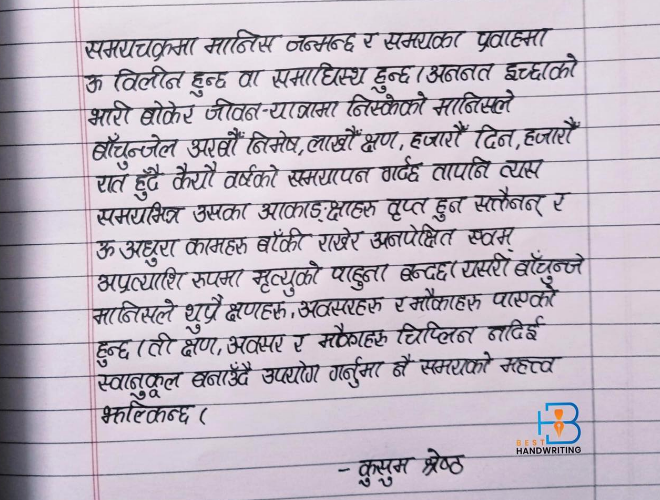 समयचक्रमा मानिस जन्मन्छ र समयका प्रवाहमा
ऊ विलीन हुन्छ वा समाधिस्थ हुन्छ । अनन्त इच्छाको
भारी बोकेर जीवन-यात्रामा निस्केको मानिसले
बाँचुन्जेल अरबौं निमेष, लाखौं क्षण, हजारौं दिन, हजारौं
रात हुँदै कैयौं वर्षको समयापन गर्दछ तापनि त्यस
समयभित्र उसका आकाङ्क्षाहरु तृप्त हुन सक्तैनन् र
ऊ अधुरा कामहरु बाँकी राखेर अनपेक्षित स्वम्
अप्रत्याशि रुपमा मृत्युको पाहुना बन्दछ । यसरी बाँचुन्जे
मानिसले थुप्रै क्षणहरु, अवसरहरु र मौकाहरु पाएको
हुन्छ । ती क्षण, अवसर र मौकाहरु चिप्लिन नदिई
स्वानुकूल बनाउँदै उपयोग गर्नुमा नै समयको महत्त्व
झल्किन्छ ।
- कुसुम श्रेष्ठ
BEST
HANDWRITING